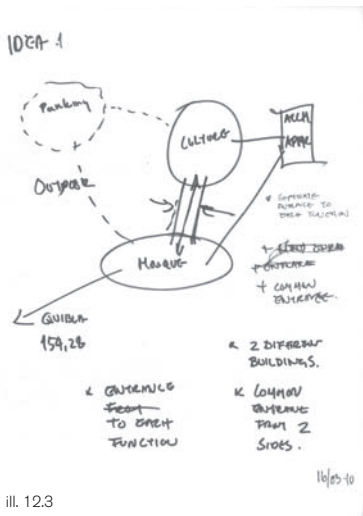 IDEA 1
Parking
+
OUTDOOR
CULTURE
MOSQUE
QUIBLA
154,28
* SEPARATE
ENTRANCE TO
EACH FUNCTION
+
+
+ COMMON
ENTRANCE.
* 2 DIFFEREN
BUILDINGS.
* ENTRANCE
FROM
TO EACH
FUNCTION
* COMMON
ENTRANCE
FROM 2
SIDES.
16/03-10
ill. 12.3